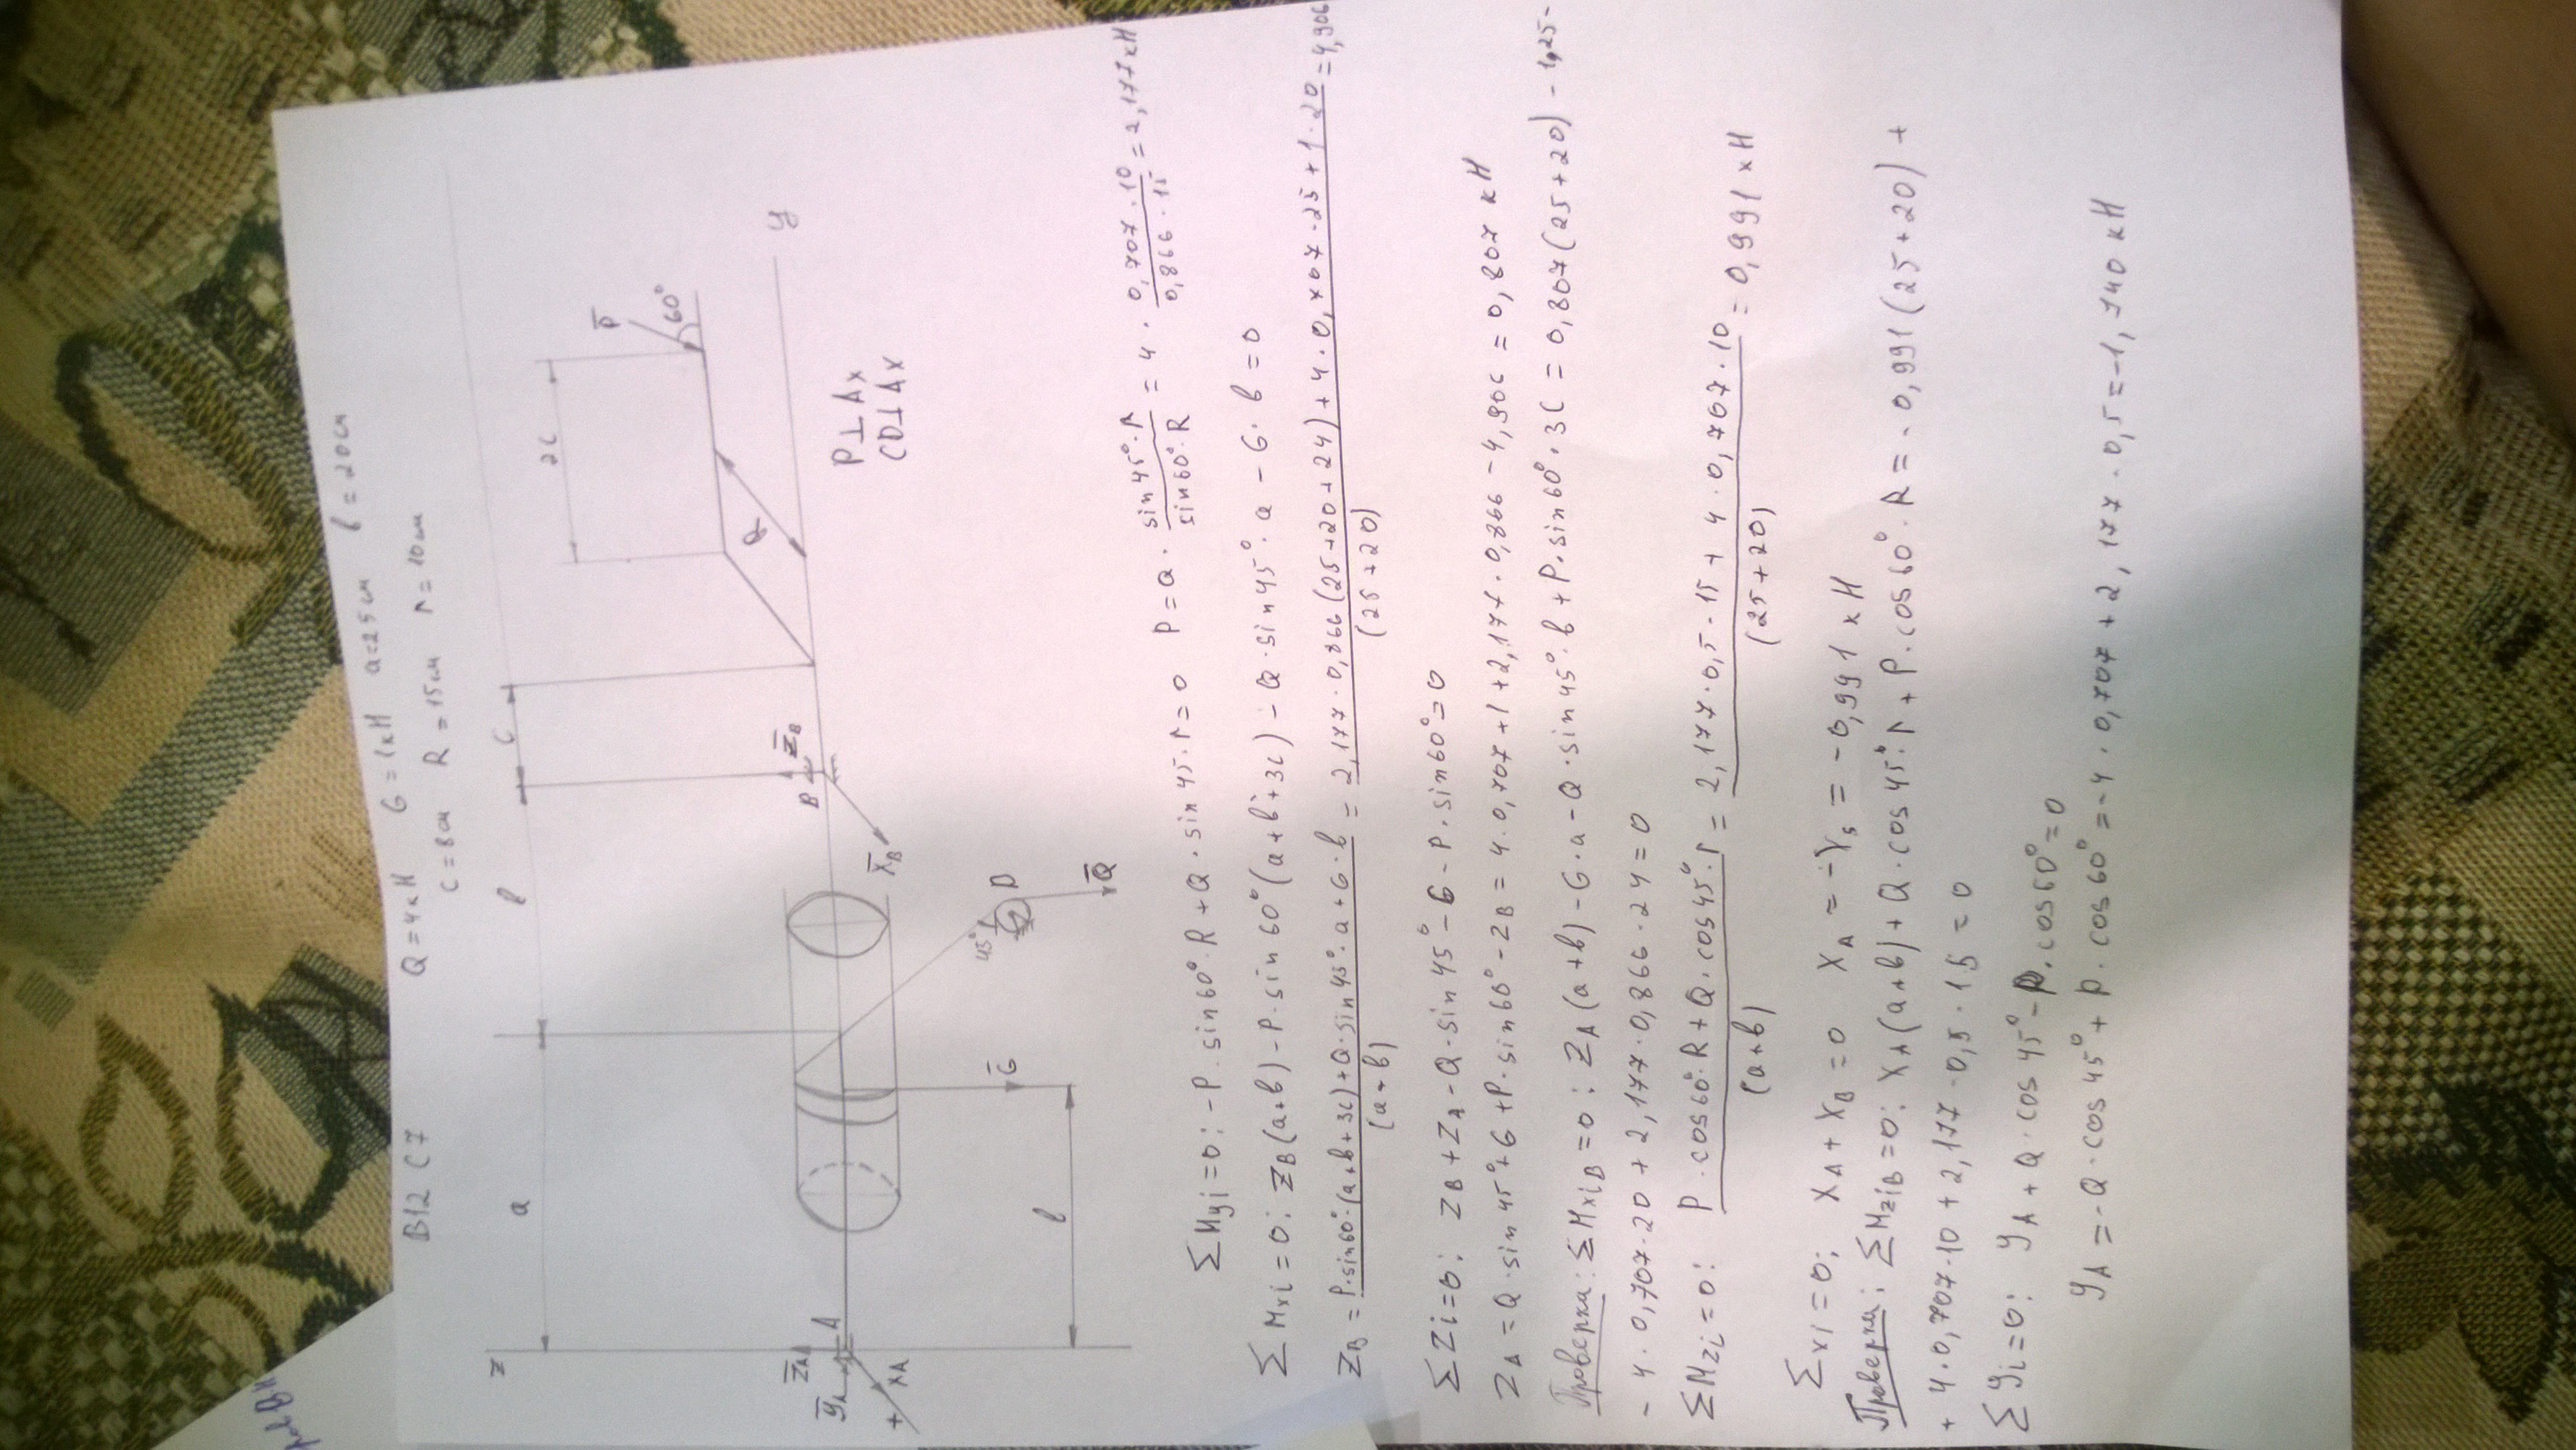 В12 С7
Q=4кН G=1кН a=25см b=20см
c=8см R=15см r=10см
a
b
c
2c
z
z̄A
ȳA
A
xA
+
Ḡ
b
45°
D
Q̄
x̄B
B
z̄B
R
P̄
60°
y
P⊥Ax
CD⊥Ax
∑Myi=0: -P·sin60°·R+Q·sin45·r=0 P=Q·(sin45°·r)/(sin60°·R)=4·(0,707·10)/(0,866·15)=2,177кН
∑Mxi=0: ZB(a+b)-P·sin60°(a+b+3c)-Q·sin45°·a-G·b=0
ZB=(P·sin60°·(a+b+3c)+Q·sin45°·a+G·b)/(a+b)=(2,177·0,866(25+20+24)+4·0,707·25+1·20)/(25+20)=4,906
∑Zi=0: ZB+ZA-Q·sin45°-G-P·sin60°=0
ZA=Q·sin45°+G+P·sin60°-ZB=4·0,707+1+2,177·0,866-4,906=0,807кН
Проверка: ∑MxiB=0: ZA(a+b)-G·a-Q·sin45°·b+P·sin60°·3c=0,807(25+20)-1·25-
-4·0,707·20+2,177·0,866·24=0
∑Mzi=0: (P·cos60°·R+Q·cos45°·r)/(a+b)=(2,177·0,5·15+4·0,707·10)/(25+20)=0,991кН
∑xi=0; xA+xB=0 xA=-xB=-0,991кН
Проверка: ∑MziB=0: xA(a+b)+Q·cos45°·r+P·cos60°·R=-0,991(25+20)+
+4·0,707·10+2,177·0,5·15=0
∑yi=0: yA+Q·cos45°-P·cos60°=0
yA=-Q·cos45°+P·cos60°=-4·0,707+2,177·0,5=-1,740кН